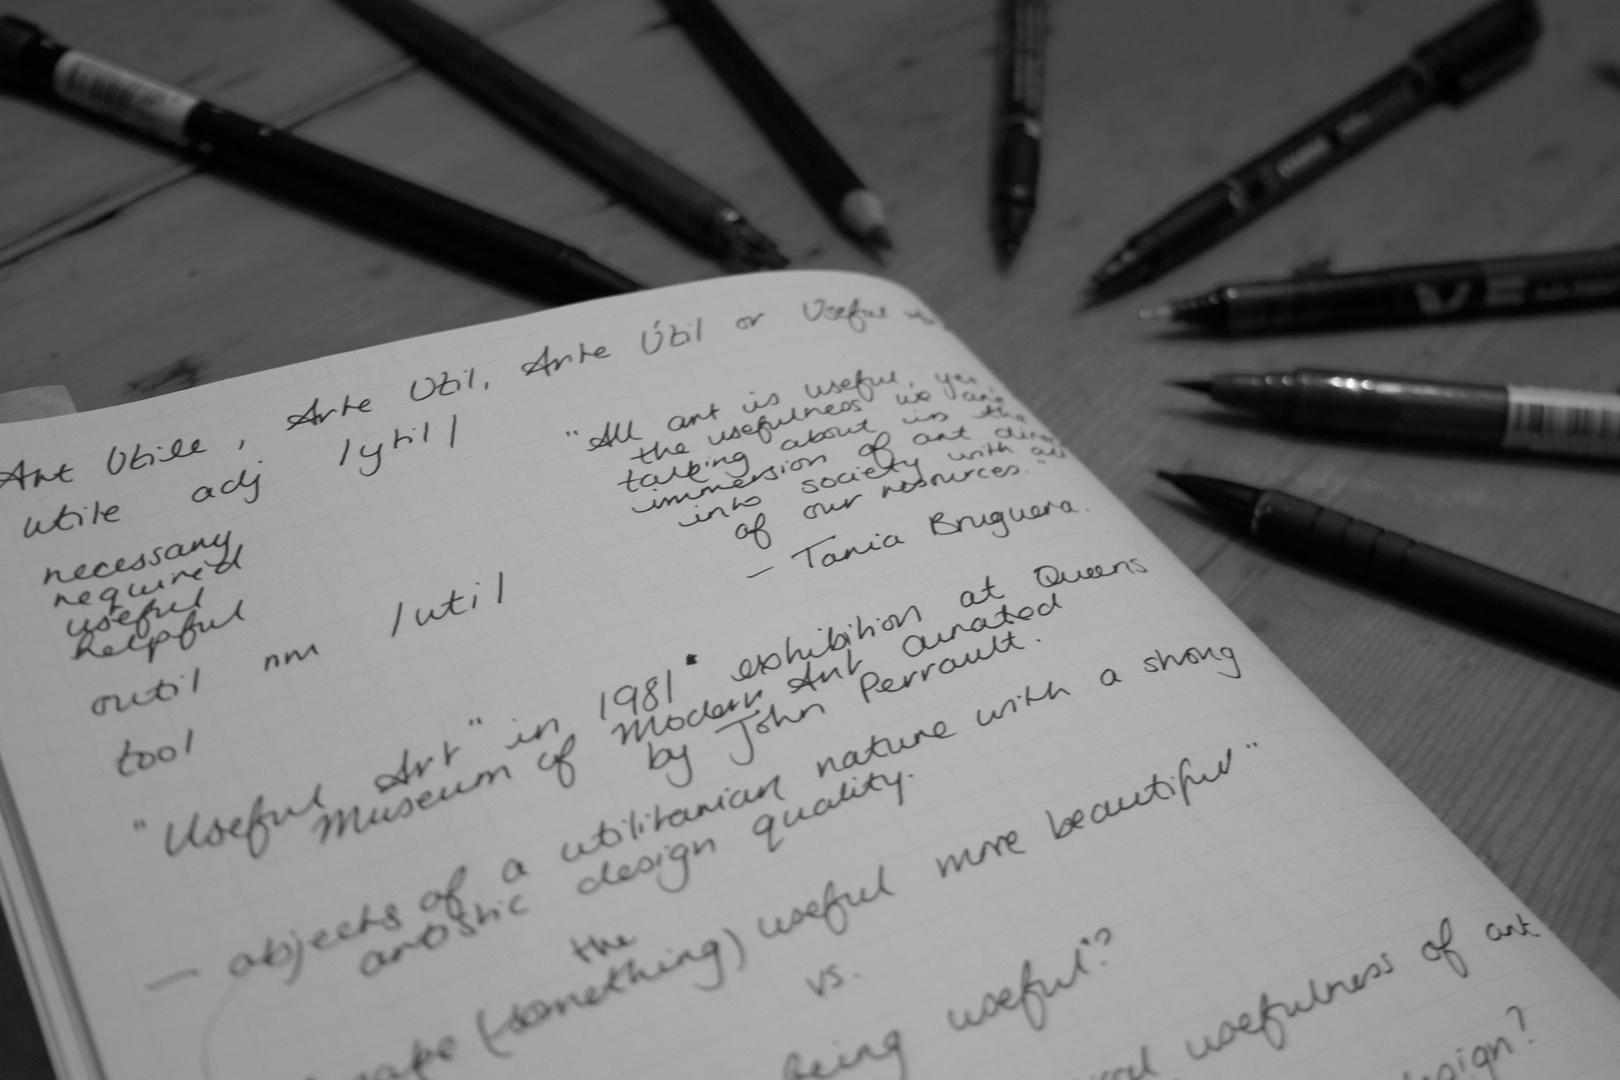 Art Utile, Arte Util, Arte Útil or Useful
utile adj /ytil/
necessary
required
useful
helpful
outil nm /util/
tool
"All art is useful, yes
the usefulness we are
talking about is the
immersion of art
into society with all
of our resources."
— Tania Bruguera.
"Useful Art" in 1981 exhibition at Queens
Museum of Modern Art curated
by John Perrault.
— objects of a utilitarian nature with a strong
artistic design quality.
the
(something) useful more beautiful"
vs.
being useful"?
usefulness of art
design?